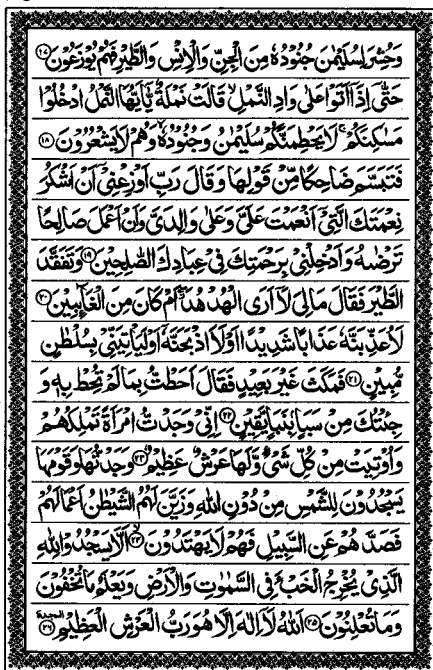 وَحُشِرَ لِسُلَيْمٰنَ جُنُوْدُهٗ مِنَ الْجِنِّ وَالْاِنْسِ وَالطَّيْرِ فَهُمْ يُوْزَعُوْنَ ۝۱۷
حَتّٰۤى اِذَاۤ اَتَوْا عَلٰى وَادِ النَّمْلِ ۙ قَالَتْ نَمْلَةٌ يّٰۤاَيُّهَا النَّمْلُ ادْخُلُوْا
مَسٰكِنَكُمْ ۚ لَا يَحْطِمَنَّكُمْ سُلَيْمٰنُ وَجُنُوْدُهٗ ۙ وَهُمْ لَا يَشْعُرُوْنَ ۝۱۸
فَتَبَسَّمَ ضَاحِكًا مِّنْ قَوْلِهَا وَقَالَ رَبِّ اَوْزِعْنِيْۤ اَنْ اَشْكُرَ
نِعْمَتَكَ الَّتِيْۤ اَنْعَمْتَ عَلَيَّ وَعَلٰى وَالِدَيَّ وَاَنْ اَعْمَلَ صَالِحًا
تَرْضٰىهُ وَاَدْخِلْنِيْ بِرَحْمَتِكَ فِيْ عِبَادِكَ الصّٰلِحِيْنَ ۝۱۹ وَتَفَقَّدَ
الطَّيْرَ فَقَالَ مَا لِيَ لَاۤ اَرَى الْهُدْهُدَ ۖ اَمْ كَانَ مِنَ الْغَآئِبِيْنَ ۝۲۰
لَاُعَذِّبَنَّهٗ عَذَابًا شَدِيْدًا اَوْ لَاۡاَذْبَحَنَّهٗۤ اَوْ لَيَاْتِيَنِّيْ بِسُلْطٰنٍ
مُّبِيْنٍ ۝۲۱ فَمَكَثَ غَيْرَ بَعِيْدٍ فَقَالَ اَحَطْتُّ بِمَا لَمْ تُحِطْ بِهٖ وَ
جِئْتُكَ مِنْ سَبَاٍۭ بِنَبَاٍ يَّقِيْنٍ ۝۲۲ اِنِّيْ وَجَدْتُّ امْرَاَةً تَمْلِكُهُمْ
وَاُوْتِيَتْ مِنْ كُلِّ شَيْءٍ وَّلَهَا عَرْشٌ عَظِيْمٌ ۝۲۳ وَجَدْتُّهَا وَقَوْمَهَا
يَسْجُدُوْنَ لِلشَّمْسِ مِنْ دُوْنِ اللّٰهِ وَزَيَّنَ لَهُمُ الشَّيْطٰنُ اَعْمَالَهُمْ
فَصَدَّهُمْ عَنِ السَّبِيْلِ فَهُمْ لَا يَهْتَدُوْنَ ۙ۝۲۴ اَلَّا يَسْجُدُوْا لِلّٰهِ
الَّذِيْ يُخْرِجُ الْخَبْءَ فِي السَّمٰوٰتِ وَالْاَرْضِ وَيَعْلَمُ مَا تُخْفُوْنَ
وَمَا تُعْلِنُوْنَ ۝۲۵ اَللّٰهُ لَاۤ اِلٰهَ اِلَّا هُوَ رَبُّ الْعَرْشِ الْعَظِيْمِ ۝۲۶ السجدة